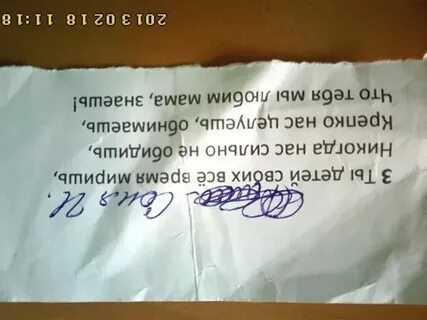 Соня И.
3 Ты детей своих всё время миришь,
Никогда нас сильно не обидишь,
Крепко нас целуешь, обнимаешь,
Что тебя мы любим мама, знаешь!
2013 02 18 11:18